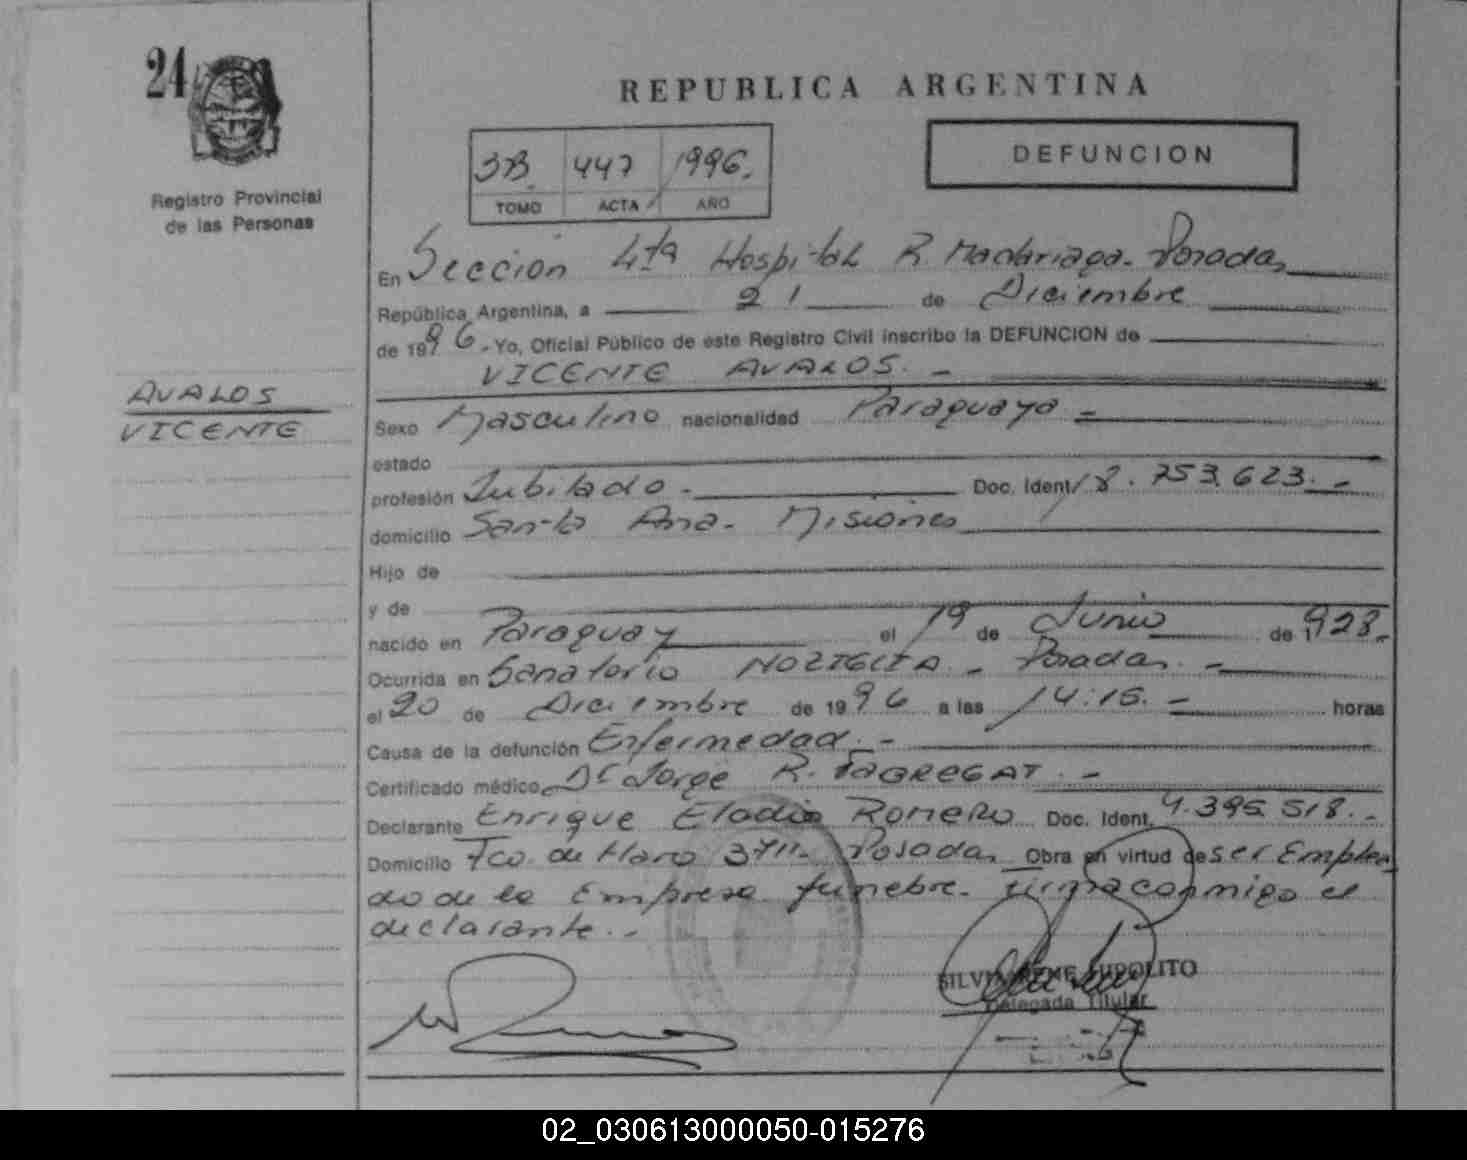 24
REPUBLICA ARGENTINA
DEFUNCION
3B. 447 1996.
TOMO ACTA AÑO
Registro Provincial
de las Personas
AVALOS
VICENTE
En Sección 4ta Hospital R. Madariaga. Posadas
República Argentina, a 21 de Diciembre
de 1996.- Yo, Oficial Público de este Registro Civil inscribo la DEFUNCION de
VICENTE AVALOS. -
Sexo Masculino nacionalidad Paraguaya -
estado
profesión Jubilado. - Doc. Ident. 8.753.623. -
domicilio Santa Ana. Misiones
Hijo de
y de
nacido en Paraguay el 19 de Junio de 1928.-
Ocurrida en Sanatorio - Posadas. -
el 20 de Diciembre de 1996 a las 14:15. - horas
Causa de la defunción Enfermedad. -
Certificado médico Dr Jorge R. FABREGAT. -
Declarante Enrique Eladio Romero Doc. Ident. 4.395.518. -
Domicilio Fco. de Haro 3711. Posadas Obra en virtud de ser Emplea
do de la Empresa fúnebre. Firma conmigo el
declarante. -
SILVIA IRENE HIPOLITO
Delegada Titular
02_030613000050-015276